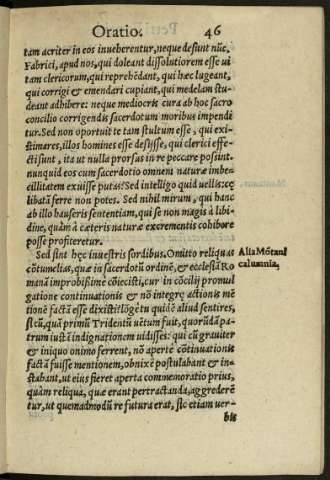 Oratio. 46
tam acriter in eos inueherentur, neque desunt nũc,
Fabrici, apud nos, qui doleant dissolutiorem esse ui
tam clericorum, qui reprehẽdant, qui hæc lugeant,
qui corrigi & emendari cupiant, qui medelam stu-
deant adhibere: neque mediocris cura ab hoc sacro
concilio corrigendis sacerdotum moribus impendi
tur. Sed non oportuit te tam stultum esse, qui exi-
stimares, illos homines esse desijsse, qui clerici effe-
cti sunt, ita ut nulla prorsus in re peccare possint.
nunquid eos cum sacerdotio omnem naturæ imbe-
cillitatem exuisse putas? Sed intelligo quid uellis: cę
libatũ ferre non potes. Sed nihil mirum, qui hanc
ab illo hauseris sententiam, qui se non magis à libi-
dine, quàm à cæteris naturæ excrementis cohibere
posse profiteretur.
Sed sint hęc inuestris sordibus. Omitto reliquas
cõtumelias, quæ in sacerdotũ ordinẽ, & ecclesiã Ro
manã improbissime cõiecisti, cur in cõcilij promul
gatione continuationis & nõ integrę actionis mẽ
tionẽ factã esse dixisti: lõgè tu quidẽ aliud sentires,
si cũ, quã primũ Tridentũ uẽtum fuit, quorũdã pa-
trum iustã indignationem uidisses: qui cũ grauiter
& iniquo animo ferrent, nõ apertè cõtinuationis
factã fuisse mentionem, obnixè postulabant & in-
stabant, ut eius fieret aperta commemoratio prius,
quàm reliqua, quæ erant pertractanda, aggredere
tur, ut quemadmodũ re futura erat, sic etiam uer-
bis
Alia Mõtani
calumnia,